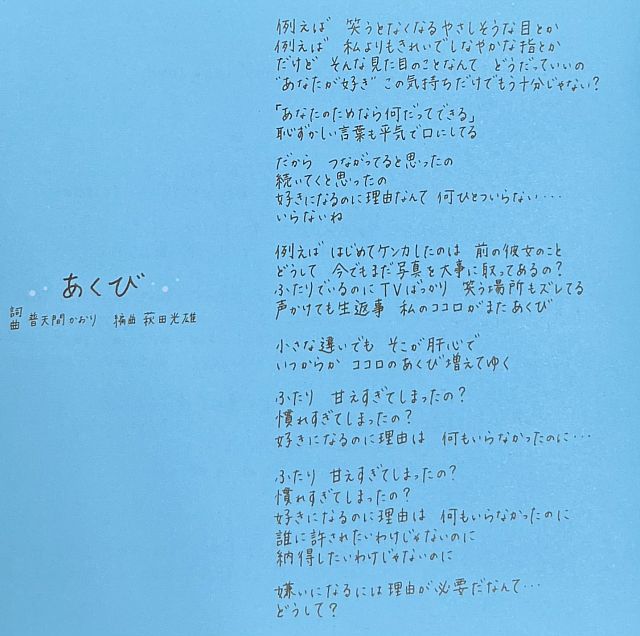 あくび
詞
曲 普天間かおり 編曲 萩田光雄
例えば 笑うとなくなるやさしそうな目とか
例えば 私よりもきれいでしなやかな指とか
だけど そんな見た目のことなんて どうだっていいの
“あなたが好き”この気持ちだけでもう十分じゃない?
「あなたのためなら何だってできる」
恥ずかしい言葉も平気で口にしてる
だから つながってると思ったの
続いてくと思ったの
好きになるのに理由なんて 何ひとついらない・・・
いらないね
例えば はじめてケンカしたのは 前の彼女のこと
どうして 今でもまだ写真を大事に取ってあるの?
ふたりでいるのにTVばっかり 笑う場所もズレてる
声かけても生返事 私のココロがまたあくび
小さな違いでも そこが肝心で
いつからか ココロのあくび増えてゆく
ふたり 甘えすぎてしまったの?
慣れすぎてしまったの?
好きになるのに理由は 何もいらなかったのに・・・
ふたり 甘えすぎてしまったの?
慣れすぎてしまったの?
好きになるのに理由は 何もいらなかったのに
誰に許されたいわけじゃないのに
納得したいわけじゃないのに
嫌いになるには理由が必要だなんて・・・
どうして?